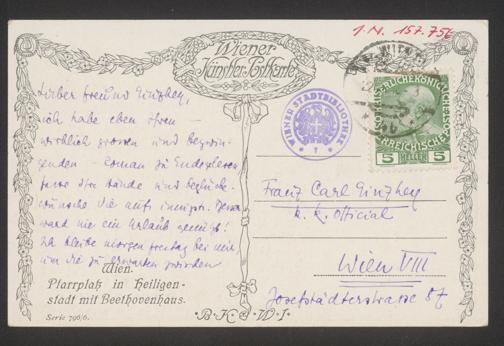 I.N. 157.756
Wiener
Künstler-Postkarte
Lieber Freund Ginzkey,
ich habe eben Ihren
wirklich grossen und bezwin-
genden Roman zu Ende gelesen
Ihre Hände und beglück-
wünsche Sie aufs innigste.
ward nie ein Urlaub genützt!
Ich bleibe morgen Freitag bei mir
um Sie zu erwarten zwischen
Wien.
Pfarrplatz in Heiligen-
stadt mit Beethovenhaus.
Serie 796/6.
B·K·W·I·
WIENER STADTBIBLIOTHEK
WIEN
5 HELLER 5
Franz Carl Ginzkey
k. k. Official
Wien VIII
Josefstädterstrasse 87